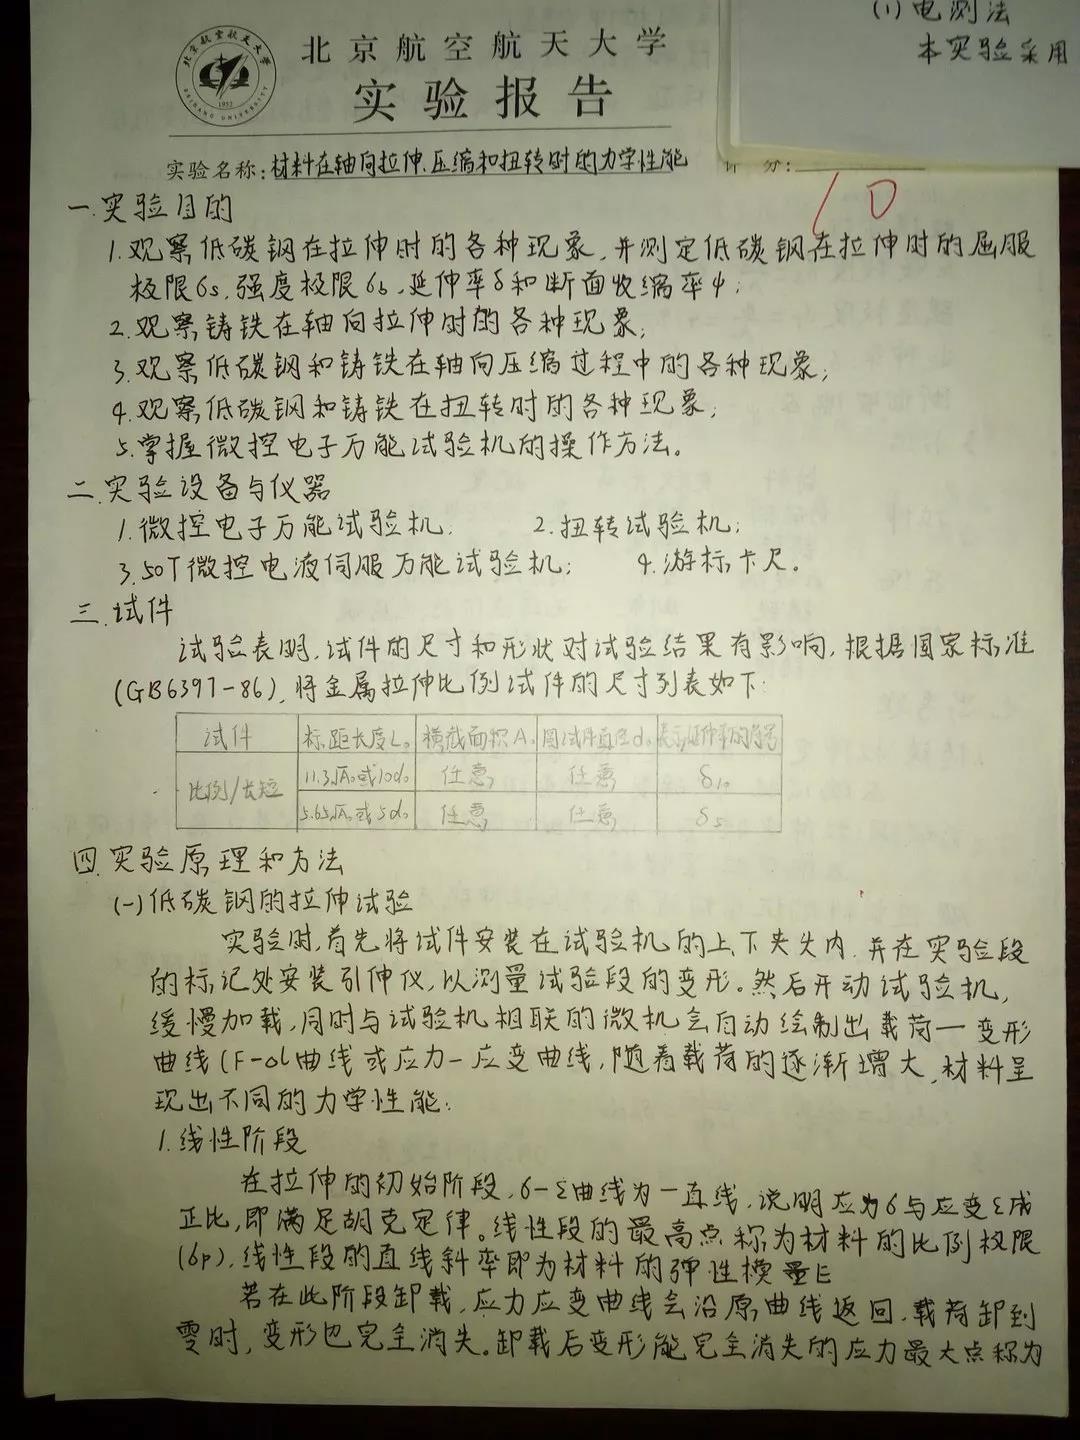 (1) 电测法
本实验采用
北京航空航天大学
实验报告
实验名称: 材料在轴向拉伸、压缩和扭转时的力学性能
评 分:
10
一.实验目的
1.观察低碳钢在拉伸时的各种现象,并测定低碳钢在拉伸时的屈服
极限σs,强度极限σb,延伸率δ和断面收缩率ψ;
2.观察铸铁在轴向拉伸时的各种现象;
3.观察低碳钢和铸铁在轴向压缩过程中的各种现象;
4.观察低碳钢和铸铁在扭转时的各种现象;
5.掌握微控电子万能试验机的操作方法。
二.实验设备与仪器
1.微控电子万能试验机; 2.扭转试验机;
3.50T微控电液伺服万能试验机; 4.游标卡尺。
三.试件
试验表明,试件的尺寸和形状对试验结果有影响,根据国家标准
(GB6397-86),将金属拉伸比例试件的尺寸列表如下:
试件 标距长度L₀ 横截面积A₀ 圆试件直径d₀ 表示延伸率的符号
比例/长短 11.3√A₀或10d₀ 任意 任意 δ₁₀
5.65√A₀或5d₀ 任意 任意 δ₅
四.实验原理和方法
(一)低碳钢的拉伸试验
实验时,首先将试件安装在试验机的上、下夹头内,并在实验段
的标记处安装引伸仪,以测量试验段的变形。然后开动试验机,
缓慢加载,同时与试验机相联的微机会自动绘制出载荷—变形
曲线(F-ol曲线或应力-应变曲线,随着载荷的逐渐增大,材料呈
现出不同的力学性能:
1.线性阶段
在拉伸的初始阶段,σ-ε曲线为一直线,说明应力σ与应变ε成
正比,即满足胡克定律。线性段的最高点称为材料的比例极限
(σp),线性段的直线斜率即为材料的弹性模量E
若在此阶段卸载,应力应变曲线会沿原曲线返回,载荷卸到
零时,变形也完全消失。卸载后变形能完全消失的应力最大点称为